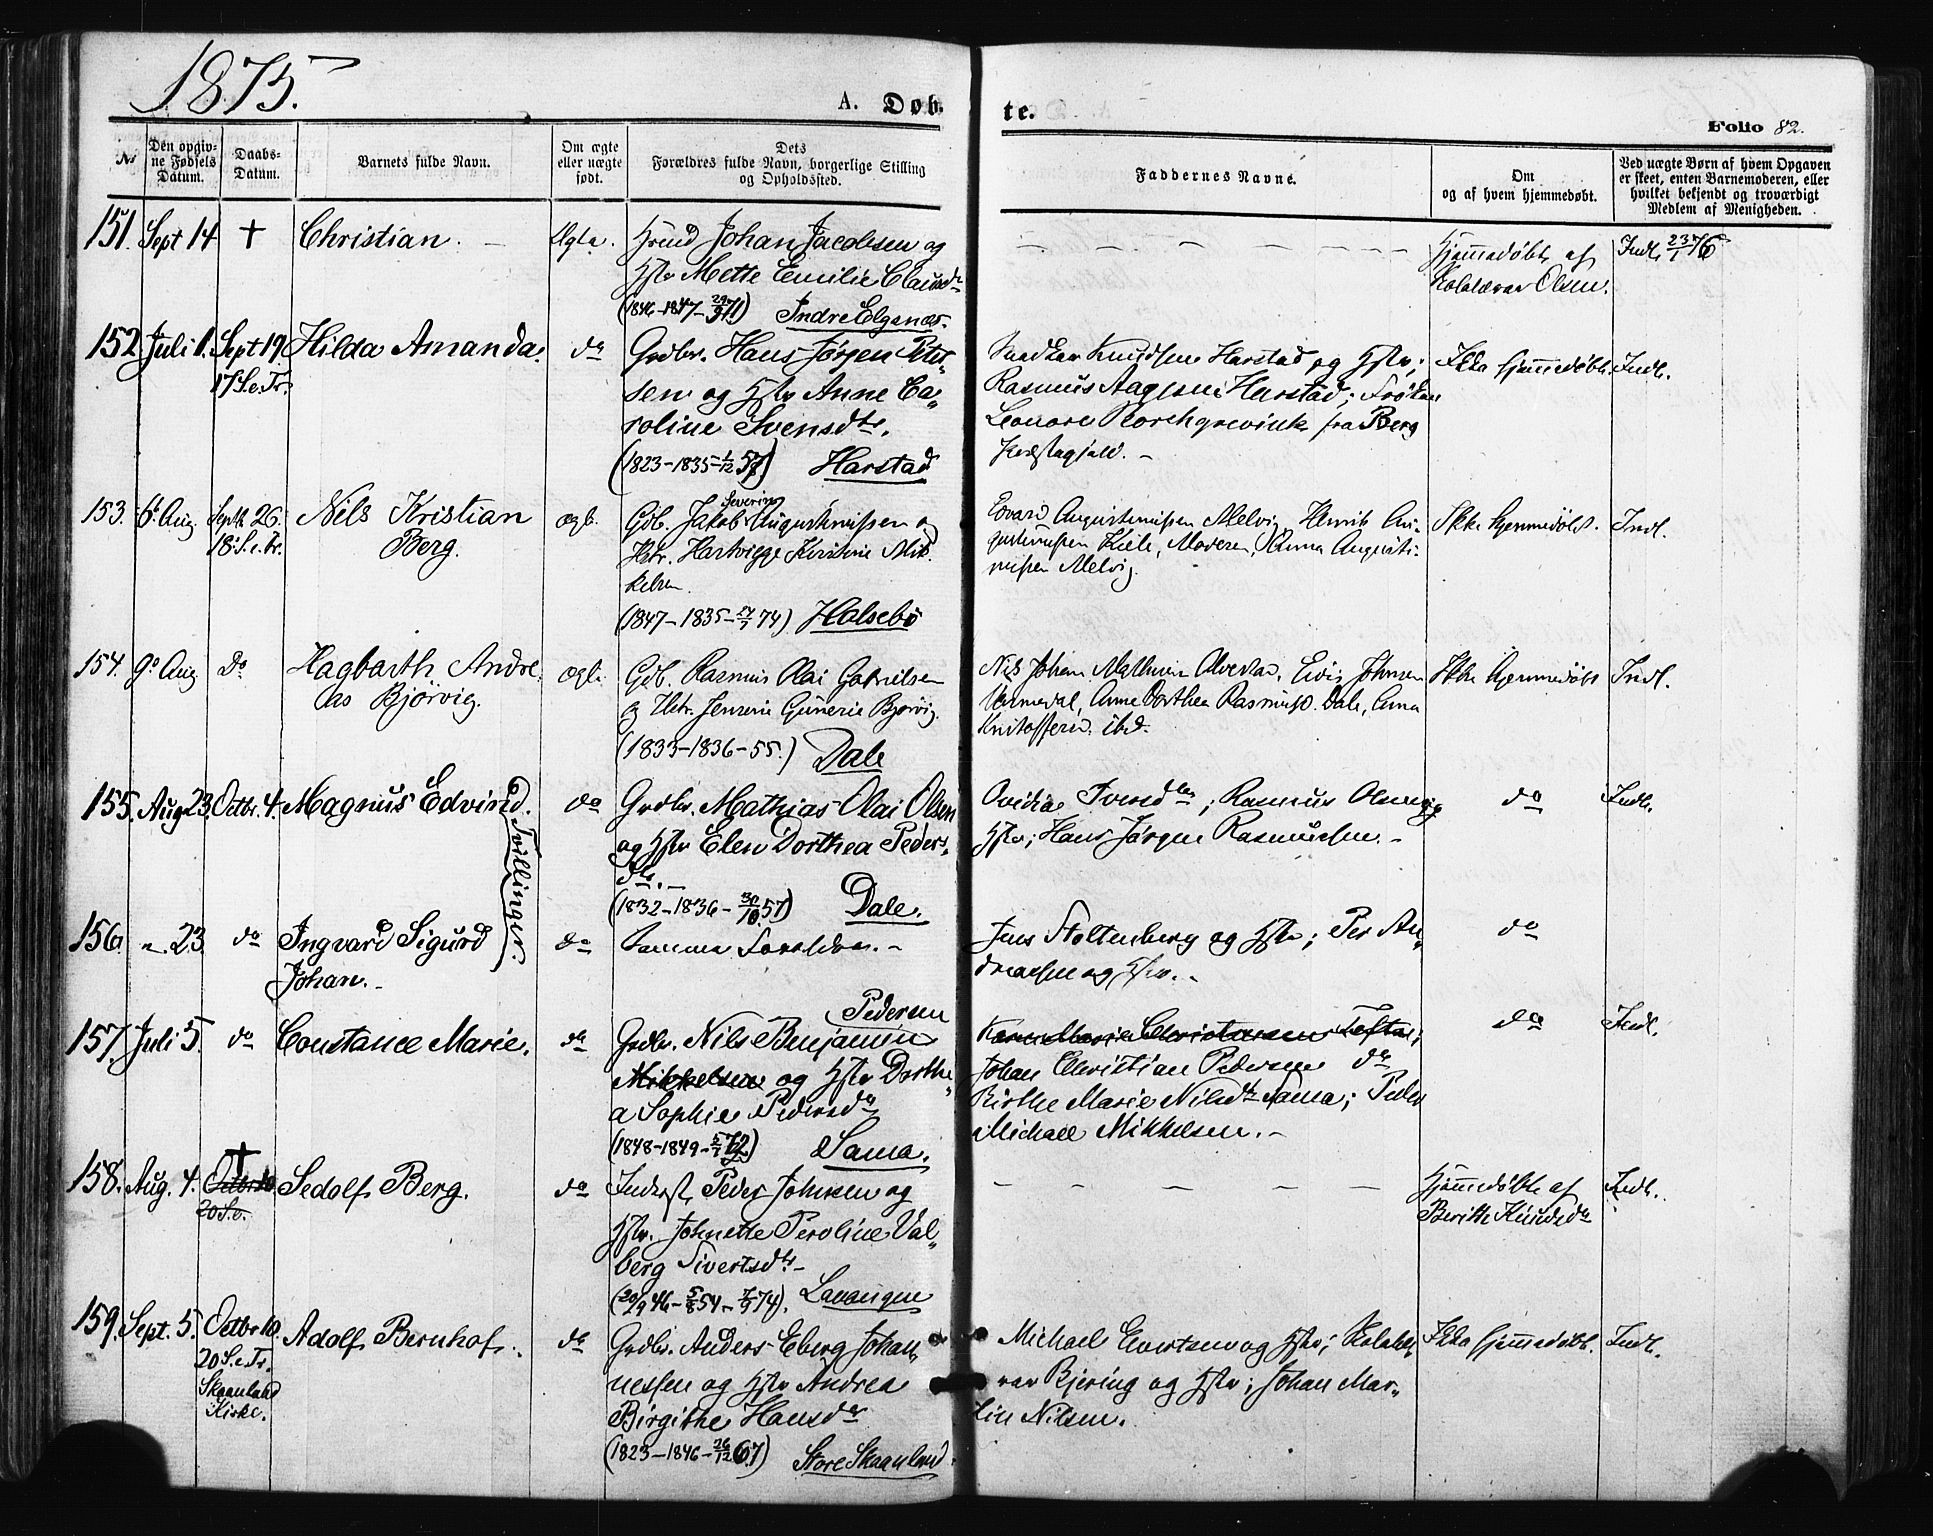 1875.
A. Døb
te.
Folio 82.
No
Den opgiv-
ne Fødsels
Datum.
Daabs-
Datum.
Barnets fulde Navn.
Om ægte
eller uægte
født.
Dets
Forældres fulde Navn, borgerlige Stilling
og Opholdssted.
Faddernes Navne.
Om
og af hvem hjemmedøbt.
Ved uægte Børn af hvem Opgaven
er skeet, enten Barnemoderen, eller
hvilket bekjendt og troværdigt
Medlem af Menigheden.
151. Sept 14 † Christian. Ægte.
Johan Jacobsen og
Hstr Mette Emilie Clausdr
(1846-1847-29/9 71) Indre Elgenæs.
Hjemmedøbt af
Olsen.
Indl. 23/1 76
152 Juli 1. Sept 19 17 S. e. Tr. Hilda Amanda. do
Grdbr. Hans Jørgen Peter-
sen og Hstr Anne Ca-
roline Svensdtr.
(1823-1835-1/12 57) Harstad
Knudsen Harstad og Hstr;
Rasmus Aagesen Harstad; Frøken
Leonore Borchgrevink fra Berg
Ikke hjemmedøbt. Indl.
153. 6t Aug. Septb 26. 18. S. e. Tr. Nils Kristian
Berg.
ægt.
Gdb. Jakob Severin Augustinussen og
Hstr. Hartvigge Kirstine Mik-
kelsen.
(1847-1835-74) Halsebø
Edvard Augustinussen Melvig, Henrik Au-
gustinussen Kiele, Moderen, Nanna Augusti-
nussen Melvig.
Ikke hjemmedøbt. Indl.
154. 9o Aug. Do Hagbarth Andre-
as Bjørvig.
ægt.
Gdb. Rasmus Olai Gabrielsen
og Hstr. Jensine Gunerie Bjørvig.
(1833-1836-55.) Dale
Nils Johan Mathisen
Anne Dorthea Rasmusd. Dale, Anna
Kristoffersd. ibd.
Ikke hjemmedøbt Indl.
155. Aug 23. Octbr. 4. Magnus Edvind. do
Tvillinger.
Grdbr. Mathias Olai Olsen
og Hstr Elen Dorthea Peders-
dtr.
(1832-1836-30/10 57) Dale.
Ovidia Iversdtr; Rasmus Olsen og
Hstr; Hans Jørgen Rasmussen.
do Indl.
156. " 23. do Ingvard Sigurd
Johan.
do
Samme Forældre.
Jens Stoltenberg og Hstr; Per An-
dreasen og Hstr.
do
157. Juli 5. do Constance Marie. do
Pedersen
Grdbr. Nils Benjamin
Mikkelsen og Hstr Dorthe-
a Sophie Pedersdr
(1848-1849-5/7 72) Sama.
Karen Marie Christensen
Johan Christian Pedersen do
Birthe Marie Nilsdtr Sama; Peder
Michael Mikkelsen.
do Indl.
158. Aug. 4. † Octbr 10 20 S. e. Sedolf Berg. do
Inderst Peder Johnsen og
Hstr. Johnette Peroline Val-
berg Sivertsdtr
(20/9 46-5/8 54-7/9 74). Lavangen
Hjemmedøbt af
Berithe Knudsdr
Indl.
159. Sept. 5. Octbr 10. 20 S. e. Tr.
Skaanland
Kirke.
Adolf Bernhof. do
Grdbr. Anders Eberg Johan-
nessen og Hstr Andrea
Birgithe Hansdr
(1823-1846-26/12 67) Store Skaanland
Michael Evertsen og Hstr;
Bjering og Hstr; Johan Mar-
tin Nilsen.
Ikke hjemmedøbt. Indl.